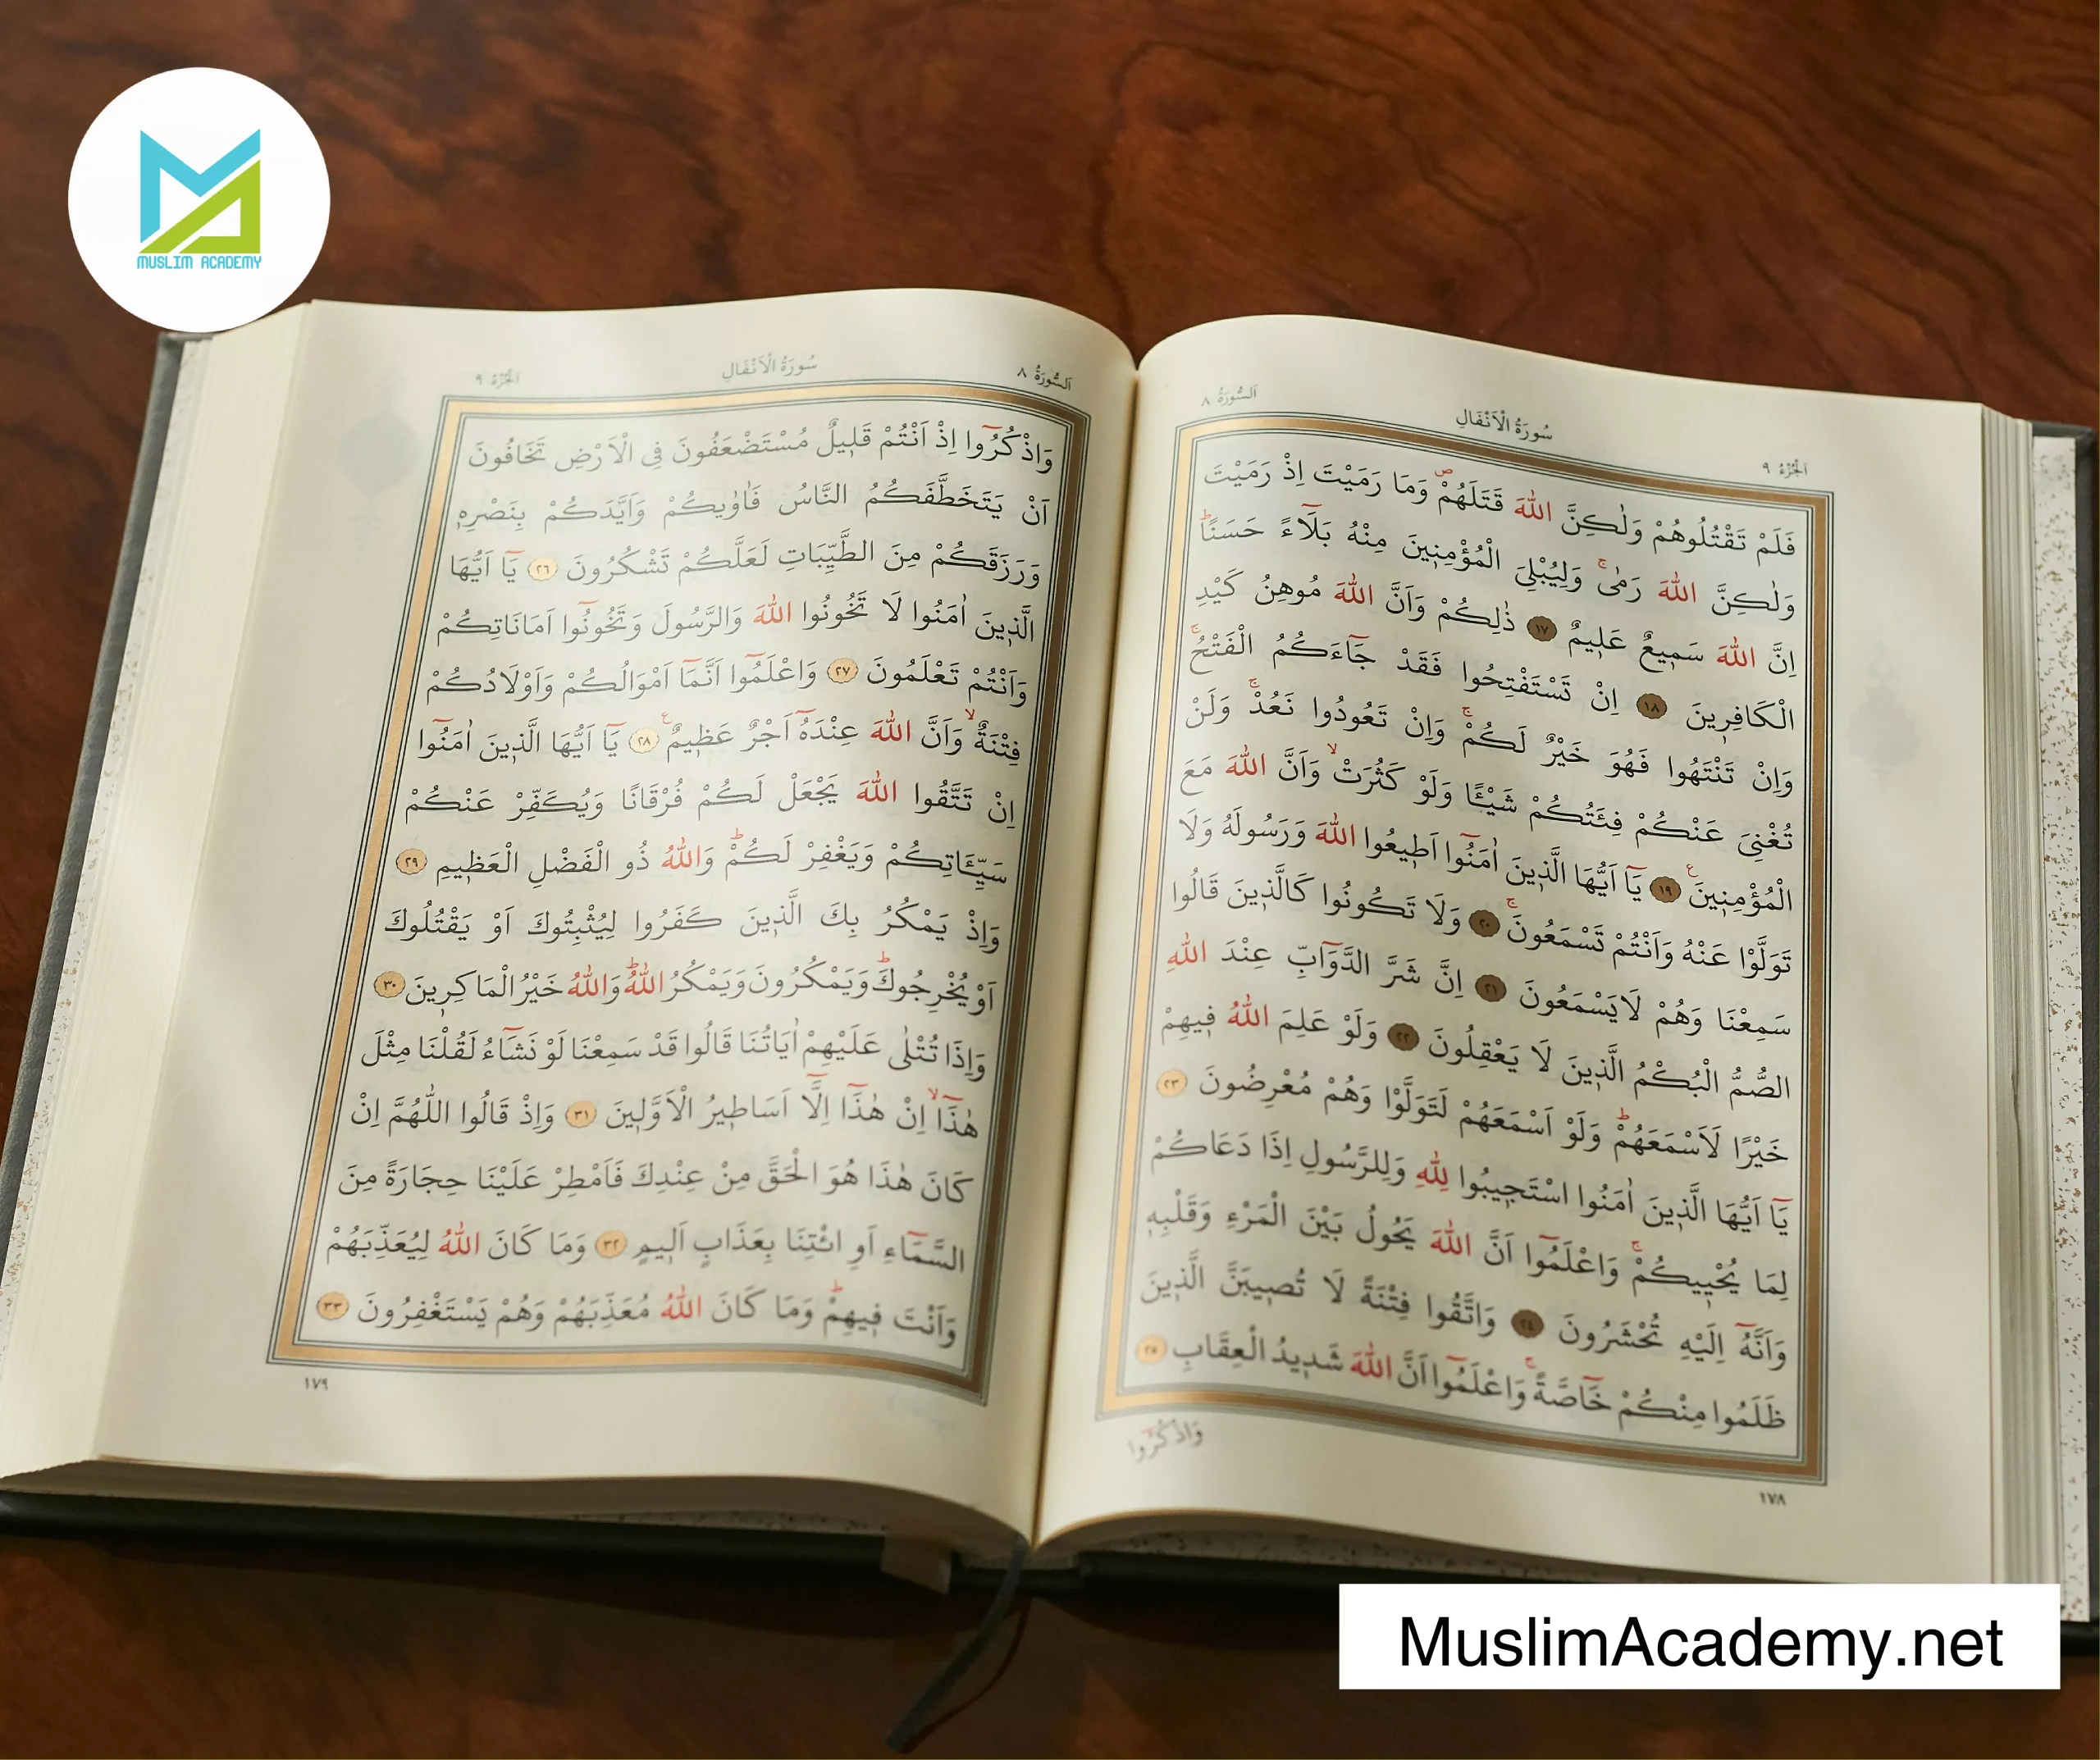 MUSLIM ACADEMY
اَلسُّورَةُ ٨
سُورَةُ الْاَنْفَالِ
اَلْجُزْءُ ٩
فَلَمْ تَقْتُلُوهُمْ وَلٰكِنَّ اللّٰهَ قَتَلَهُمْۖ وَمَا رَمَيْتَ اِذْ رَمَيْتَ
وَلٰكِنَّ اللّٰهَ رَمٰىۚ وَلِيُبْلِيَ الْمُؤْمِنِينَ مِنْهُ بَلَٓاءً حَسَنًاۜ
اِنَّ اللّٰهَ سَمِيعٌ عَلِيمٌ ١٧ ذٰلِكُمْ وَاَنَّ اللّٰهَ مُوهِنُ كَيْدِ
الْكَافِرِينَ ١٨ اِنْ تَسْتَفْتِحُوا فَقَدْ جَٓاءَكُمُ الْفَتْحُۚ
وَاِنْ تَنْتَهُوا فَهُوَ خَيْرٌ لَكُمْۚ وَاِنْ تَعُودُوا نَعُدْۚ وَلَنْ
تُغْنِيَ عَنْكُمْ فِئَتُكُمْ شَيْـًٔا وَلَوْ كَثُرَتْۙ وَاَنَّ اللّٰهَ مَعَ
الْمُؤْمِنِينَ ع ١٩ يَٓا اَيُّهَا الَّذِينَ اٰمَنُٓوا اَطِيعُوا اللّٰهَ وَرَسُولَهُ وَلَا
تَوَلَّوْا عَنْهُ وَاَنْتُمْ تَسْمَعُونَۚ ٢٠ وَلَا تَكُونُوا كَالَّذِينَ قَالُوا
سَمِعْنَا وَهُمْ لَا يَسْمَعُونَ ٢١ اِنَّ شَرَّ الدَّوَٓابِّ عِنْدَ اللّٰهِ
الصُّمُّ الْبُكْمُ الَّذِينَ لَا يَعْقِلُونَ ٢٢ وَلَوْ عَلِمَ اللّٰهُ فِيهِمْ
خَيْرًا لَاَسْمَعَهُمْۜ وَلَوْ اَسْمَعَهُمْ لَتَوَلَّوْا وَهُمْ مُعْرِضُونَ ٢٣
يَٓا اَيُّهَا الَّذِينَ اٰمَنُوا اسْتَجِيبُوا لِلّٰهِ وَلِلرَّسُولِ اِذَا دَعَاكُمْ
لِمَا يُحْيِيكُمْۚ وَاعْلَمُٓوا اَنَّ اللّٰهَ يَحُولُ بَيْنَ الْمَرْءِ وَقَلْبِهِ
وَاَنَّهُٓ اِلَيْهِ تُحْشَرُونَ ٢٤ وَاتَّقُوا فِتْنَةً لَا تُصِيبَنَّ الَّذِينَ
ظَلَمُوا مِنْكُمْ خَٓاصَّةًۚ وَاعْلَمُٓوا اَنَّ اللّٰهَ شَدِيدُ الْعِقَابِ ٢٥
وَاذْكُرُٓوا
١٧٨
اَلسُّورَةُ ٨
سُورَةُ الْاَنْفَالِ
اَلْجُزْءُ ٩
وَاذْكُرُٓوا اِذْ اَنْتُمْ قَلِيلٌ مُسْتَضْعَفُونَ فِي الْاَرْضِ تَخَافُونَ
اَنْ يَتَخَطَّفَكُمُ النَّاسُ فَاٰوٰيكُمْ وَاَيَّدَكُمْ بِنَصْرِهِ
وَرَزَقَكُمْ مِنَ الطَّيِّبَاتِ لَعَلَّكُمْ تَشْكُرُونَ ٢٦ يَٓا اَيُّهَا
الَّذِينَ اٰمَنُوا لَا تَخُونُوا اللّٰهَ وَالرَّسُولَ وَتَخُونُٓوا اَمَانَاتِكُمْ
وَاَنْتُمْ تَعْلَمُونَ ٢٧ وَاعْلَمُٓوا اَنَّمَٓا اَمْوَالُكُمْ وَاَوْلَادُكُمْ
فِتْنَةٌۙ وَاَنَّ اللّٰهَ عِنْدَهُٓ اَجْرٌ عَظِيمٌ ع ٢٨ يَٓا اَيُّهَا الَّذِينَ اٰمَنُٓوا
اِنْ تَتَّقُوا اللّٰهَ يَجْعَلْ لَكُمْ فُرْقَانًا وَيُكَفِّرْ عَنْكُمْ
سَيِّـَٔاتِكُمْ وَيَغْفِرْ لَكُمْۜ وَاللّٰهُ ذُو الْفَضْلِ الْعَظِيمِ ٢٩
وَاِذْ يَمْكُرُ بِكَ الَّذِينَ كَفَرُوا لِيُثْبِتُوكَ اَوْ يَقْتُلُوكَ
اَوْ يُخْرِجُوكَۜ وَيَمْكُرُونَ وَيَمْكُرُ اللّٰهُۜ وَاللّٰهُ خَيْرُ الْمَاكِرِينَ ٣٠
وَاِذَا تُتْلٰى عَلَيْهِمْ اٰيَاتُنَا قَالُوا قَدْ سَمِعْنَا لَوْ نَشَٓاءُ لَقُلْنَا مِثْلَ
هٰذَٓاۙ اِنْ هٰذَٓا اِلَّٓا اَسَاطِيرُ الْاَوَّلِينَ ٣١ وَاِذْ قَالُوا اللّٰهُمَّ اِنْ
كَانَ هٰذَا هُوَ الْحَقَّ مِنْ عِنْدِكَ فَاَمْطِرْ عَلَيْنَا حِجَارَةً مِنَ
السَّمَٓاءِ اَوِ ائْتِنَا بِعَذَابٍ اَلِيمٍ ٣٢ وَمَا كَانَ اللّٰهُ لِيُعَذِّبَهُمْ
وَاَنْتَ فِيهِمْۜ وَمَا كَانَ اللّٰهُ مُعَذِّبَهُمْ وَهُمْ يَسْتَغْفِرُونَ ٣٣
١٧٩
MuslimAcademy.net